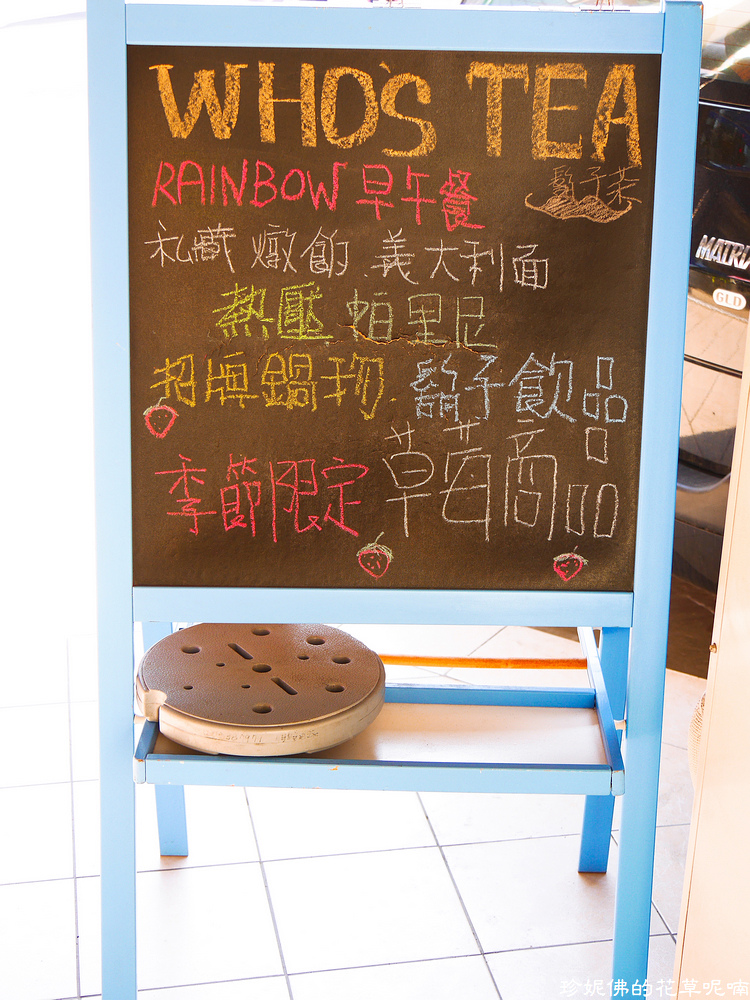 WHO'S TEA
鬍子茶
RAINBOW 早午餐
私藏 燉飯 義大利面
熱壓 帕里尼
招牌鍋物 鬍子飲品
季節限定 草莓商品
MATRI
GLD
珍妮佛的花草呢喃